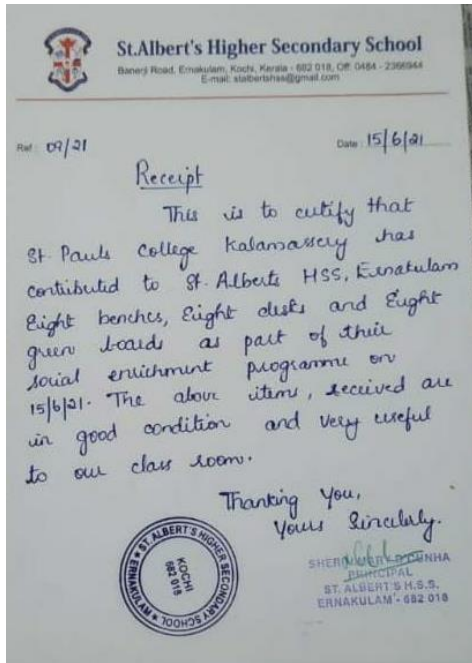 St.Albert's Higher Secondary School
Banerji Road, Ernakulam, Kochi, Kerala - 682 018, Off: 0484 - 2366944
E-mail: stalbertshss@gmail.com
Ref : 09/21
Date : 15/6/21
Receipt
This is to certify that
St. Pauls College Kalamassery has
contributed to St. Alberts HSS, Ernakulam
Eight benches, Eight desks and Eight
green boards as part of their
social enrichment programme on
15/6/21. The above items, received are
in good condition and very useful
to our class room.
Thanking You,
Yours Sincerely.
ST. ALBERT'S HIGHER SECONDARY SCHOOL
★ ERNAKULAM ★
KOCHI
682 018
PRINCIPAL
ST. ALBERT'S H.S.S.
ERNAKULAM - 682 018